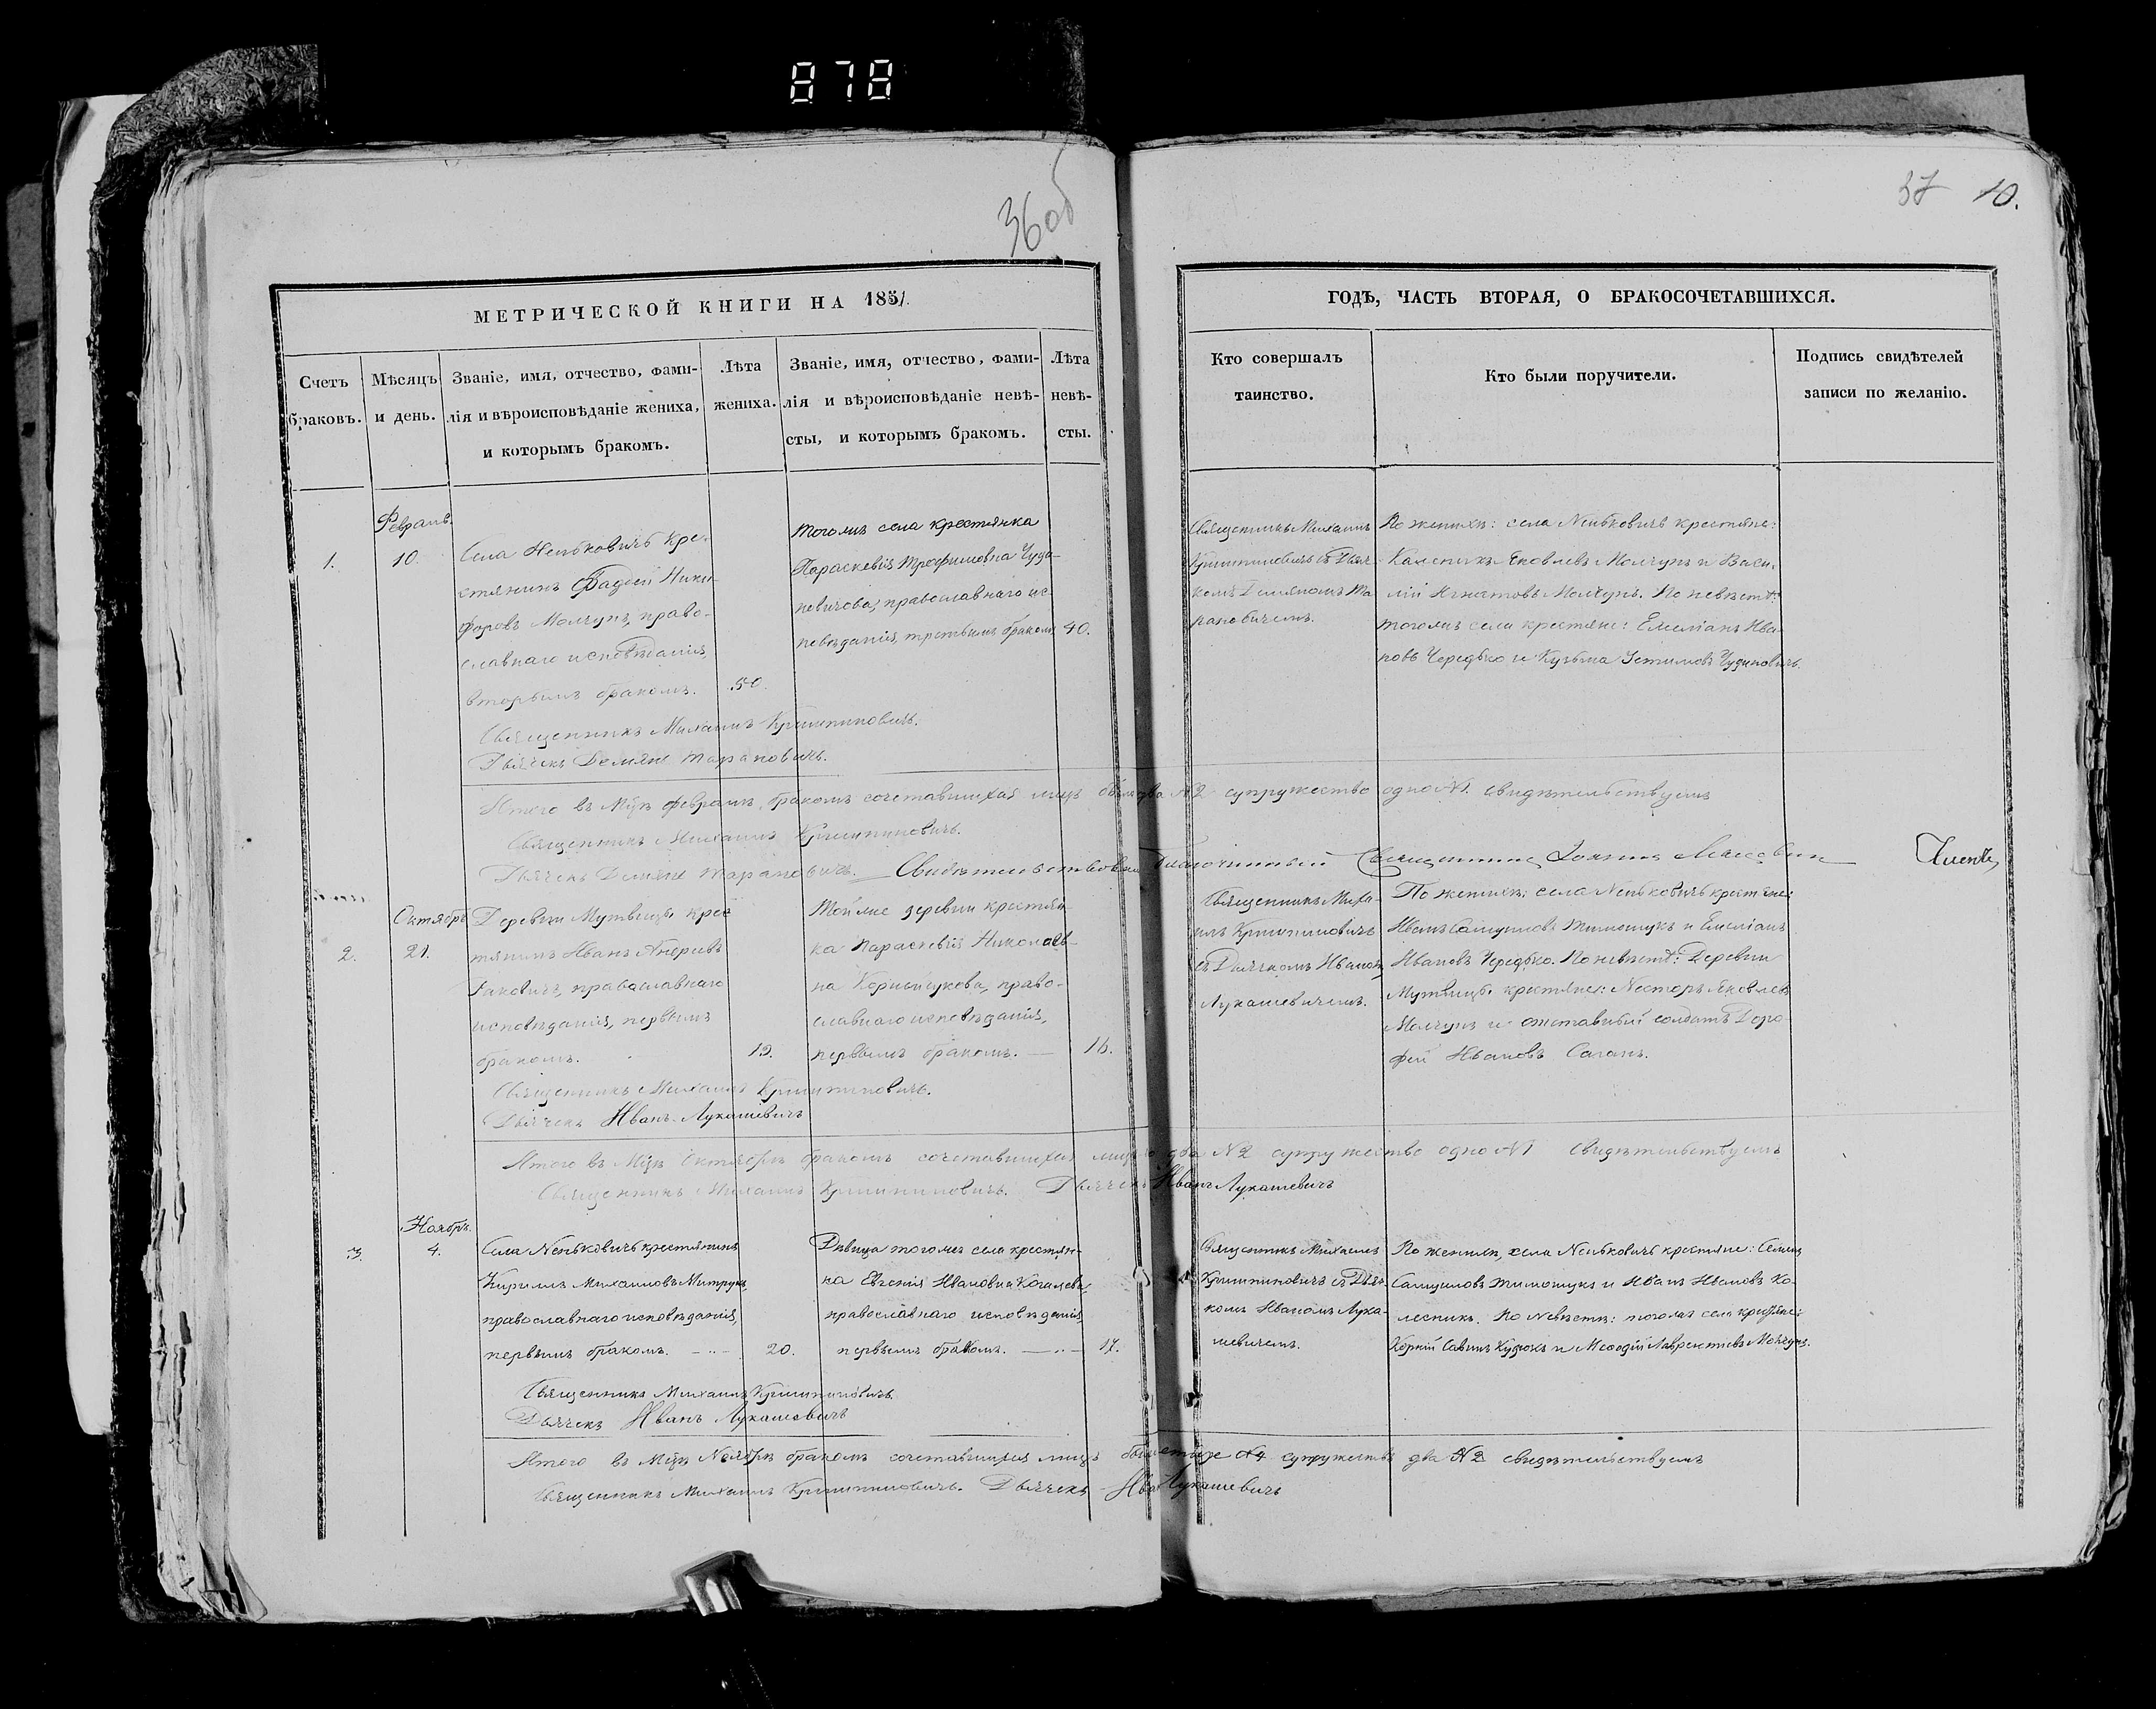 878
36об
37 10.
МЕТРИЧЕСКОЙ КНИГИ НА 1851.
ГОДѢ, ЧАСТЬ ВТОРАЯ, О БРАКОСОЧЕТАВШИХСЯ.
Счетъ
браковъ.
Мѣсяцъ
и день.
Званіе, имя, отчество, фами-
лія и вѣроисповѣданіе жениха,
и которымъ бракомъ.
Лѣта
жениха.
Званіе, имя, отчество, фами-
лія и вѣроисповѣданіе невѣ-
сты, и которымъ бракомъ.
Лѣта
невѣ-
сты.
Кто совершалъ
таинство.
Кто были поручители.
Подпись свидѣтелей
записи по желанію.
1.
Февраль.
10.
Села Неньковичъ кре-
стянинъ Фаддей Ники-
форовъ Молчунъ, право-
славнаго исповѣданія,
вторымъ бракомъ.
50.
тогожъ села крестянка
Параскевія Трофимовна Чуди-
невичова, православнаго ис-
повѣданія, третьимъ бракомъ
40.
Священникъ Михаилъ
Криштиповичъ съ Дьяч-
комъ Деміяномъ Та
рановичемъ.
По женихѣ: села Неньковичъ крестяне:
Каленикъ Яковлевъ Молчунъ и Васи-
лій Игнатовъ Молчунъ. По невѣстѣ:
тогожъ села крестяне: Емеліанъ Ива-
новъ Чередько и Кузьма Устимовъ Чудиновичъ.
Священникъ Михаилъ Криштиповичъ.
Дьячекъ Деміянъ Тарановичъ.
Итого въ Мцѣ февралѣ, бракомъ сочетавшихся лицъ было два №2 супружество одно №1. свидѣтельствуемъ
Священникъ Михаилъ Криштиповичъ.
Дьячекъ Деміянъ Тарановичъ. Свидѣтельствовалъ Благочинный Священникъ Іоаннъ
2.
Октябрь
21.
Деревни Мутвицы крес
тянинъ Иванъ Андреевъ
Раковичъ, православнаго
исповѣданія, первымъ
бракомъ.
19.
Тойже деревни крестьян
ка Параскевія Николаев-
на Корнейчукова, право-
славнаго исповѣданія,
первымъ бракомъ. —
16.
Священникъ Миха-
илъ Криштиповичъ
съ Дьячкомъ Иваномъ
Лукашевичемъ.
По женихѣ: села Неньковичъ крестяне:
Иванъ Самуиловъ Тимошукъ и Емеліанъ
Ивановъ Чередько. По невѣстѣ: Деревни
Мутвицы крестяне: Несторъ Яковлевъ
Молчунъ и отставный солдатъ Доро
фей Ивановъ Саганъ.
Священникъ Михаилъ Криштиповичъ.
Дьячекъ Иванъ Лукашевичъ
Итого въ Мцѣ Октябрѣ бракомъ сочетавшихся лицъ два №2 супружество одно №1 свидѣтельствуемъ
Священникъ Михаилъ Криштиповичъ. Дьячекъ Иванъ Лукашевичъ
3.
Ноябрь.
4.
Села Неньковичъ крестянинъ
Кириллъ Михаиловъ Митрукъ,
православнаго исповѣданія,
первымъ бракомъ.
20.
Дѣвица тогожъ села крестян-
ка Евгенія Ивановна Ковалева,
православнаго исповѣданія
первымъ бракомъ.
17.
Священникъ Михаилъ
Криштиповичъ съ Дьяч-
комъ Иваномъ Лука-
шевичемъ.
По женихѣ, села Неньковичъ крестяне: Семенъ
Самуиловъ Тимошукъ и Иванъ Ивановъ Ко-
лесникъ. По невѣстѣ: тогожъ села крестяне:
Корній Савинъ Кудюкъ и Меѳодій Лаврентіевъ Молчунъ.
Священникъ Михаилъ Криштиповичъ.
Дьячекъ Иванъ Лукашевичъ
Итого въ Мцѣ Ноябрѣ бракомъ сочетавшихся лицъ было четыре №4 супружествъ два №2 свидѣтельствуемъ
Священникъ Михаилъ Криштиповичъ. Дьячекъ Иванъ Лукашевичъ